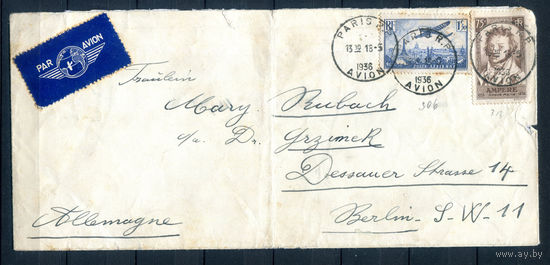 PAR AVION
PARIS
13 32 18-5
1936
AVION
RF
1f50
75c
1936
AVION
AMPERE
306
Fräulein
Mary Rubach
c/o. Dr. Grzimek
Dessauer Strasse 14
Berlin-S-W-11
Allemagne
www.ay.by